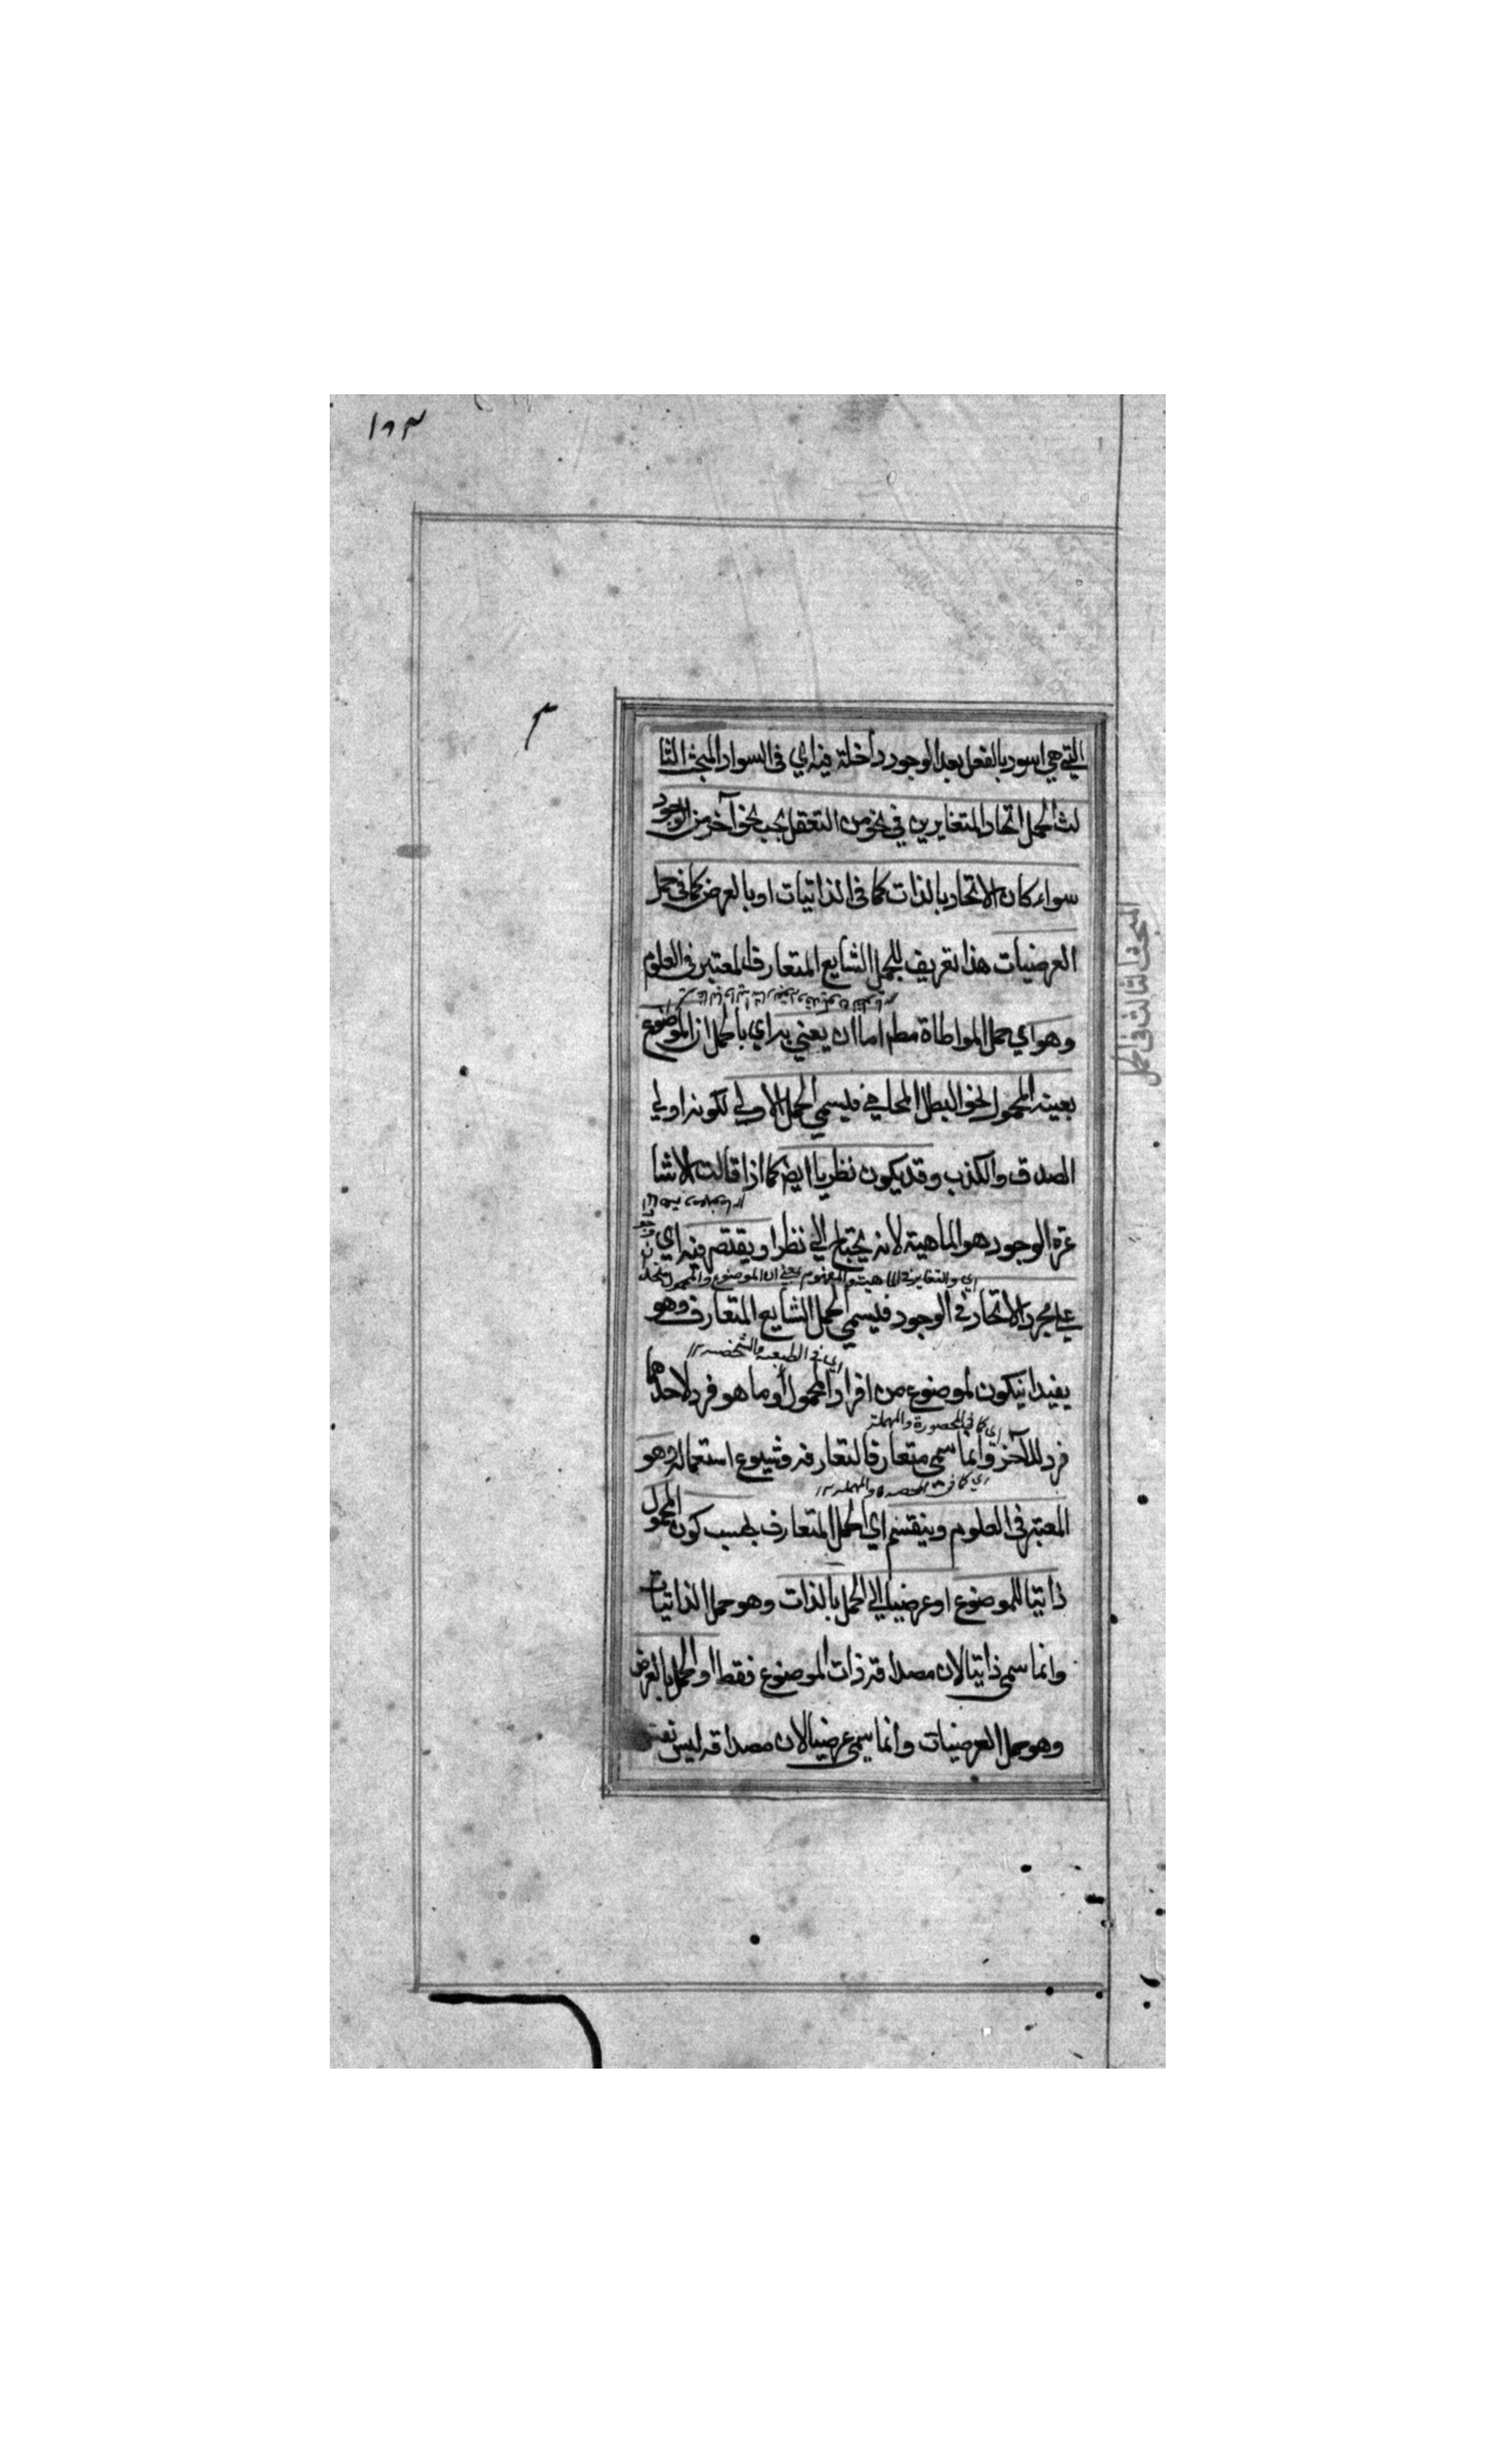 ١٦٣
التي هي اسود بالفعل بعد الوجود داخلة فيه اي في السواد المبحث الثا
لث الحمل اتحاد المتغايرين في نحو من التعقل بحسب نحو آخر من الوجود
سواء كان الاتحاد بالذات كما في الذاتيات او بالعرض كما في حمل
العرضيات هذا تعريف للحمل الشايع المتعارف المعتبر في العلوم
وهو اي حمل المواطاة مط اما ان يعني به اي بالحمل ان الموضوع
بعينه المحمول نحو البطل المحامي فيسمي الحمل الاولي لكونه اولي
الصدق والكذب وقد يكون نظريا ايض كما اذا قالت الاشا
عرة الوجود هو الماهية لانه يحتاج الي نظر او يقتصر فيه اي
اي والتغاير في الماهية والمفهوم يعني ان الموضوع والمحمول متحد
علي مجرد الاتحاد في الوجود فيسمي الحمل الشايع المتعارف وهو
اي في الطبعية والشخصية ١٢
يفيد ان يكون لموضوع من افراد المحمول أو ما هو فرد لاحدهما
اي كما في المحصورة والمهملة
فرد للآخر وانما سمي متعارفا لتعارفه وشيوع استعماله وهو
اي كما في المحصورة والمهملة ١٢
المعتبر في العلوم وينقسم اي الحمل المتعارف بحسب كون المحمول
ذاتيا للموضوع او عرضيا الي الحمل بالذات وهو حمل الذاتيات
وانما سمي ذاتيا لان مصداقه ذات الموضوع فقط او الحمل بالعرض
وهو حمل العرضيات وانما سمي عرضيا لان مصداقه ليس نفس
المبحث الثالث في الحمل